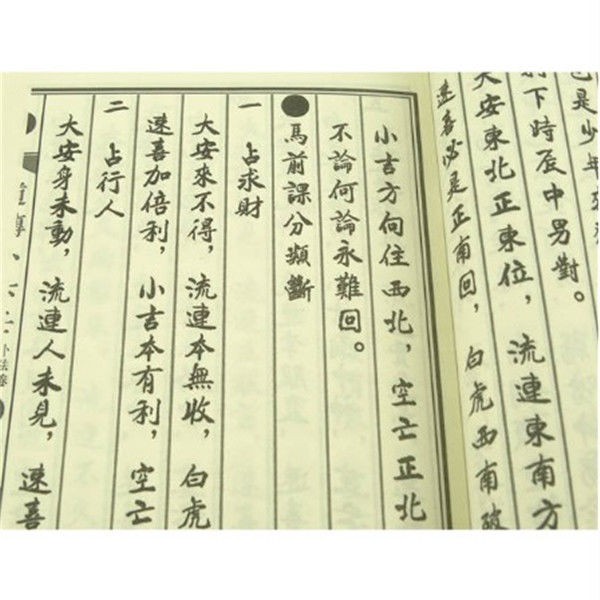 也是少年
下時辰中男對。
大安東北正東位，流連東南方
速喜必是正南回，白虎西南破
小吉方向住西北，空亡正北
不論何論永難回。
●馬前課分類斷
一 占求財
大安來不得，流連本無收，白虎
速喜加倍利，小吉本有利，空亡
二 占行人
大安身未動，流連人未見，速喜